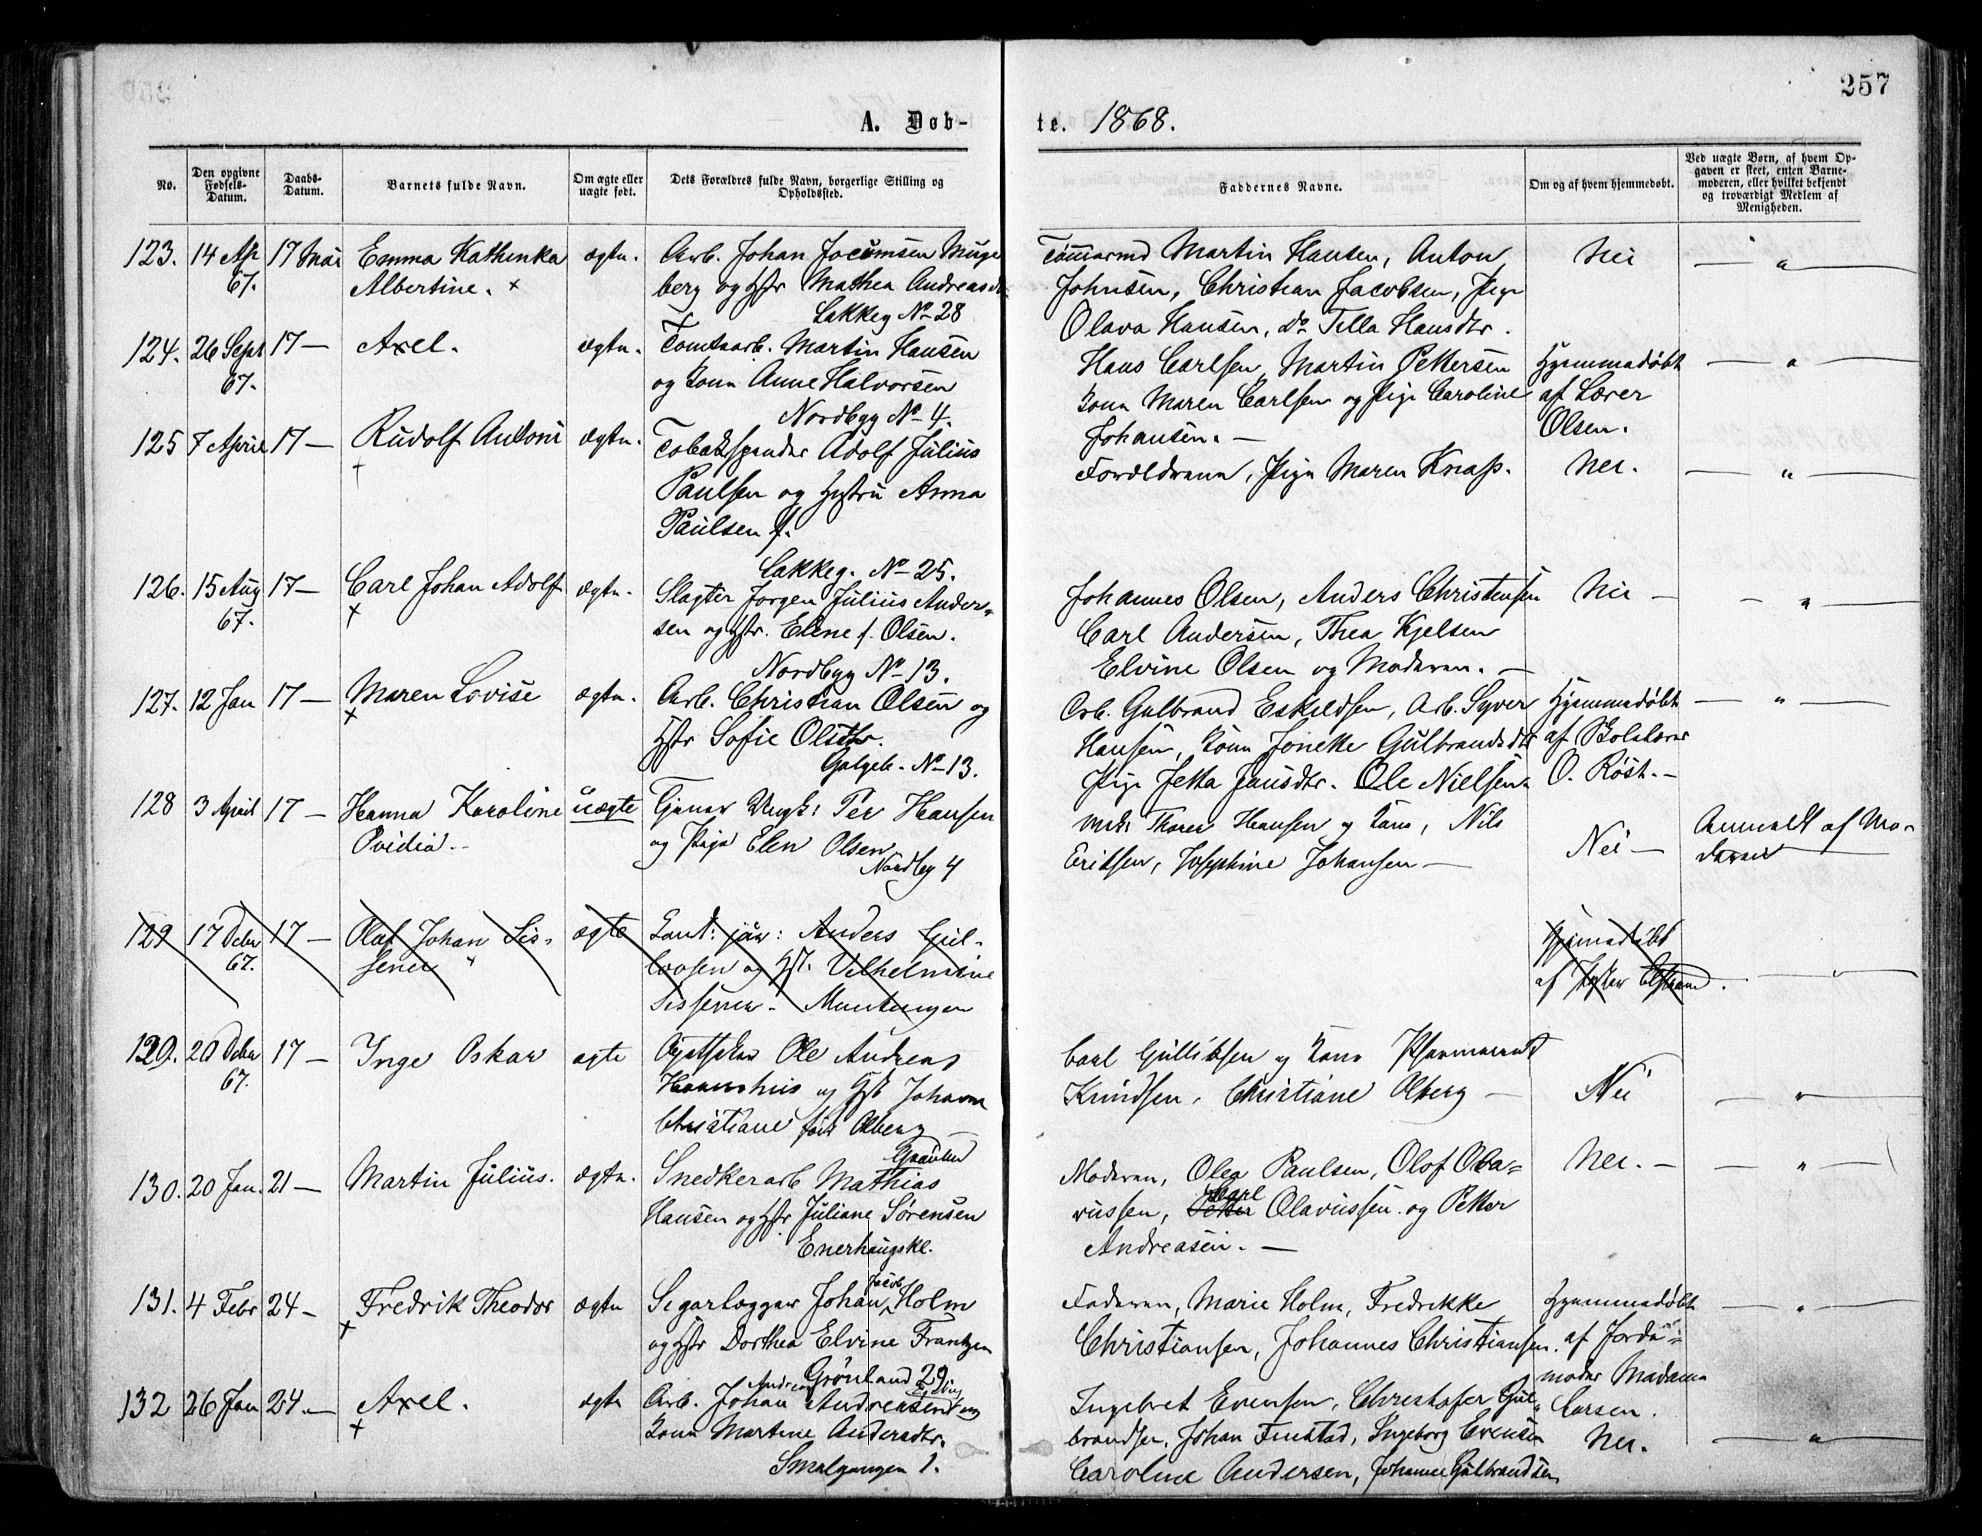 257
A. Døb-
te. 1868.
No.
Den opgivne Fødsels-Datum.
Daabs-Datum.
Barnets fulde Navn.
Om ægte eller uægte født.
Dets Forældres fulde Navn, borgerlige Stilling og Opholdssted.
Faddernes Navne.
Om og af hvem hjemmedøbt.
Ved uægte Børn, af hvem Op-
gaven er skeet, enten Barne-
moderen, eller hvilket bekjendt
og troværdigt Medlem af
Menigheden.
123. 14 Ap 67. 17 Mai Emma Kathinka ægte. Arb. Johan Jocumsen
Albertine. × berg og Hstr Mathea Andreasdt
Lakkeg No 28
Martin Hansen, Anton Nei "
Johnsen, Christian Jacobsen, Pige
Olava Hansen, do Tilla Hansdtr.
124. 26 Sept 67. 17 — Axel. ægte. Tomtearb. Martin Hansen
og Kone Anne Halvorsen
Nordbyg No 4.
Hans Carlsen, Martin Pettersen Hjemmedøbt "
Kone Maren Carlsen og Pige Caroline af Lærer
Johansen. — Olsen.
125 7 April 17 — Rudolf Antoni ægte. Tobakspinder Adolf Julius
Paulsen og Hustru Anna
Paulsen f.
Lakkeg. No 25.
Forældrene, Pige Maren Knaps. Nei. "
126. 15 Aug 67. 17 — Carl Johan Adolf ægte. Slagter Jørgen Julius Ander-
× sen og Hstr. Elene f. Olsen.
Nordbyg No 13.
Johannes Olsen, Anders Christensen Nei — "
Carl Andersen, Thea Kjelsen
Elvine Olsen og Moderen. —
127. 12 Jan 17 — Maren Lovise ægte. Arb. Christian Olsen og
× Hstr Sofie Olsdtr.
Galgeb. No 13.
Arb. Gulbrand Eskildsen, Arb. Syver Hjemmedøbt "
Hansen, Kone Jonette Gulbrandsdtr af Skolelærer
Pige Jetta Jansdtr. Ole Nielsen. O. Röst. —
128 3 April 17 — Hanna Karoline uægte Per Hansen
Ovidia. og Pige Elen Olsen
Nordbyg 4
Thorer Hansen og Kone, Nils Nei — Anmeldt af Mo-
Eriksen, Josephine Johansen — deren
129 17 Decbr 67. 17 — Olaf Johan Sis- ægte Anders Gul-
sener og Hst. Vilhelmine
Sissener. Muntergen
Hjemmedøbt
af
129. 20 Decbr 67. 17 — Inge Oskar ægte Ole Andreas
og Hst Johanne
Christiane født Olberg
Grønland
Carl Gulliksen og Kone Nei "
Knudsen, Christiane Olberg —
130. 20 Jan. 21 — Martin Julius. ægte. Snedkerarb Mathias
Hansen og Hstr Juliane Sørensen
Enerhaugskl.
Moderen, Olea Paulsen, Olof Ola- Nei. — "
russen, Petter Carl Olavussen og Petter
Andreasen. —
131. 4 Febr 24 — Fredrik Theodor ægte Segarlægger Johan Jacob Holm
× og Hstr Dorthea Elvine Frantzen
Grønland 29
Faderen, Marie Holm, Fredrikke Hjemmedøbt "
Christiansen, Johannes Christiansen. af Jorde-
moder Madame
Larsen.
132 26 Jan 24. — Axel. ægte Arb. Johan Andreas Andreasen og
× Kone Martine Andersdtr.
Smalgangen 1.
Ingebret Evensen, Christofer Gul-
brandsen, Johan Finstad, Ingeborg Evensen Nei. "
Caroline Andersen, Johanne Gulbrandsen